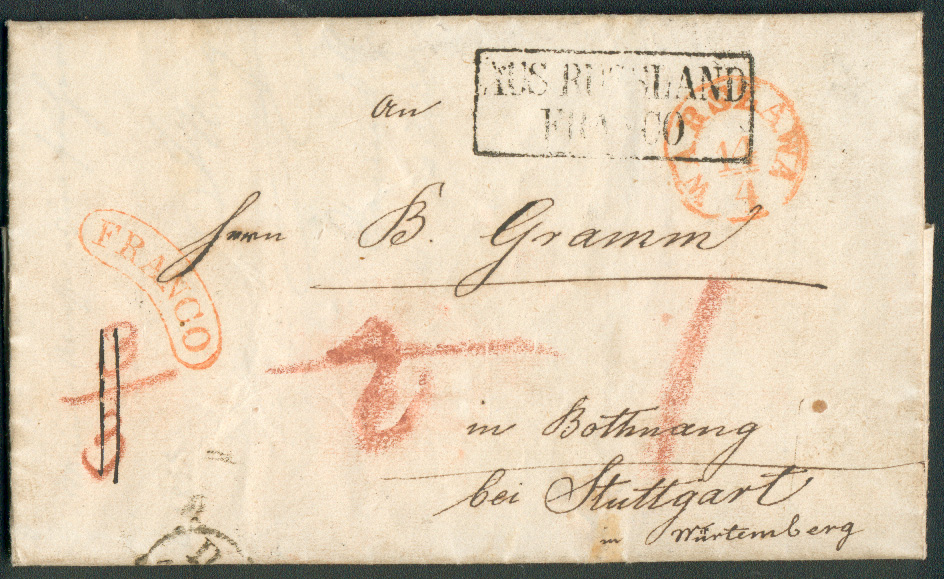 AUS RUSSLAND
FRANCO
WARSZAWA
14
4
an
Herrn B. Gramm
FRANCO
2
1
in Bothnang
bei Stuttgart
in Würtemberg